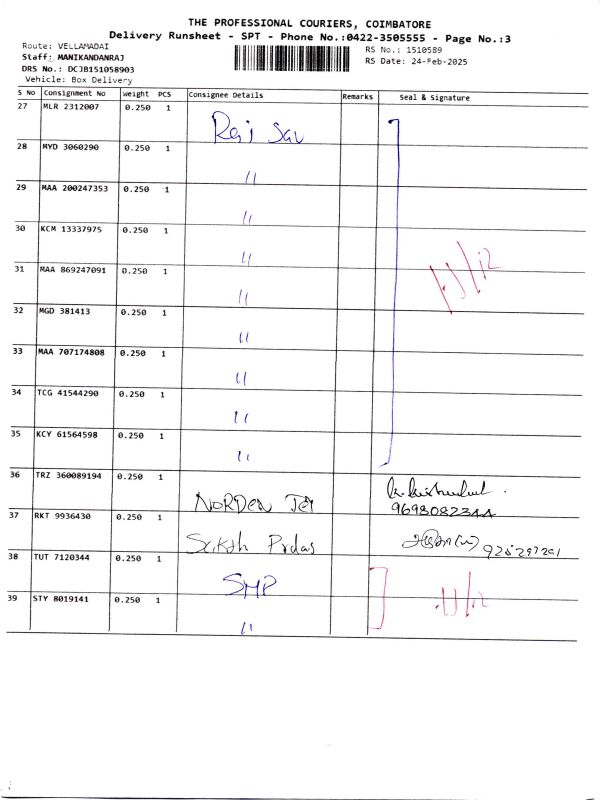 THE PROFESSIONAL COURIERS, COIMBATORE
Delivery Runsheet - SPT - Phone No.:0422-3505555 - Page No.:3
Route: VELLAMADAI
Staff: MANIKANDANRAJ
DRS No.: DCJB151058903
Vehicle: Box Delivery
RS No.: 1510589
RS Date: 24-Feb-2025
S No Consignment No Weight PCS Consignee Details Remarks Seal & Signature
27 MLR 2312007 0.250 1
28 MYD 3060290 0.250 1 "
29 MAA 200247353 0.250 1 "
30 KCM 13337975 0.250 1 "
31 MAA 869247091 0.250 1 "
32 MGD 381413 0.250 1 "
33 MAA 707174808 0.250 1 "
34 TCG 41544290 0.250 1 "
35 KCY 61564598 0.250 1 "
36 TRZ 360089194 0.250 1 NORDEN 9698082344
37 RKT 9936430 0.250 1
38 TUT 7120344 0.250 1 SMP
39 STY 8019141 0.250 1 "